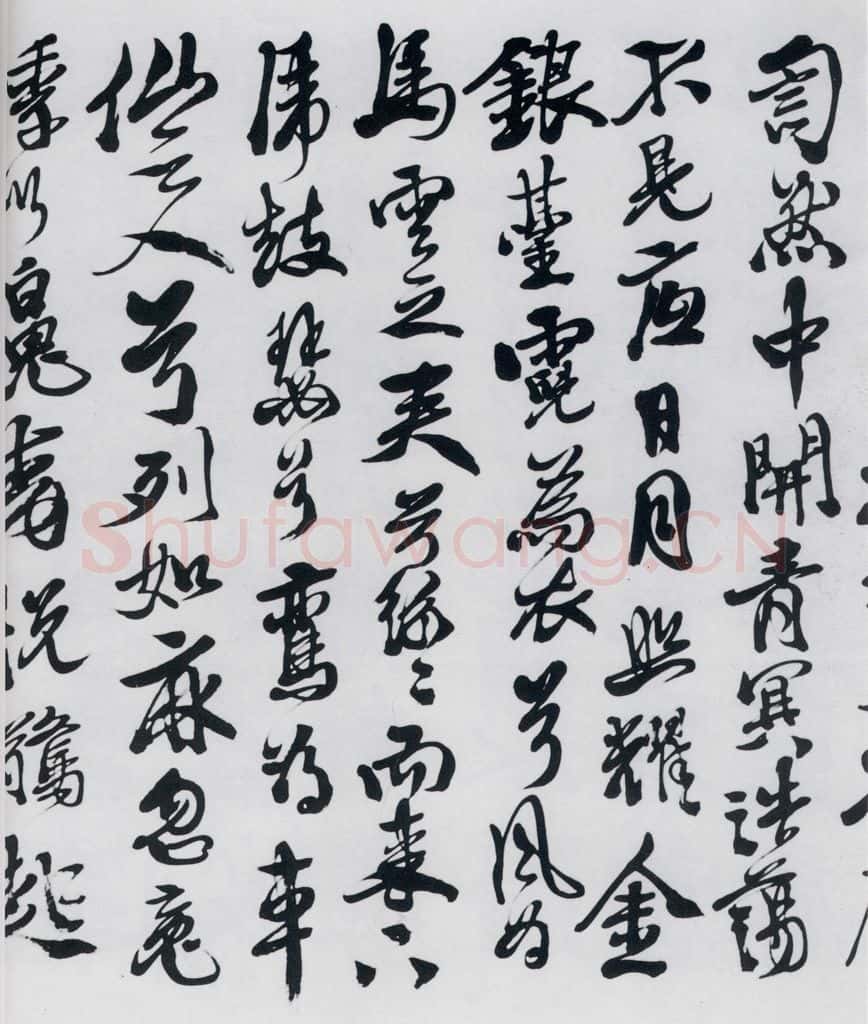 訇然中開青冥浩蕩
不見底日月照耀金
銀臺霓為衣兮風為
馬雲之君兮紛〻而来下
虎鼓瑟兮鸞回車
仙之人兮列如麻忽魂
悸以魄動恍驚起
Shufawang.CN